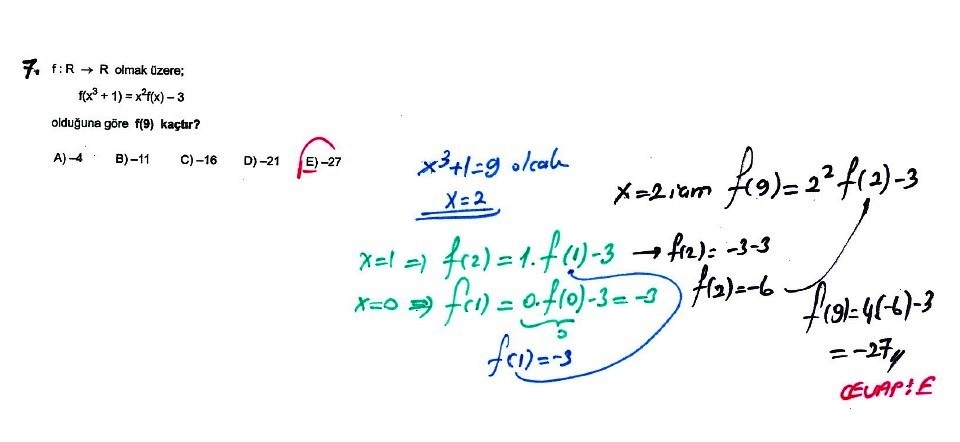 7. f : R → R olmak üzere;
f(x³ + 1) = x²f(x) – 3
olduğuna göre f(9) kaçtır?
A) –4 B) –11 C) –16 D) –21 E) –27
x³+1=9 olcak
x=2
x=2 için f(9)=2² f(2)-3
x=1 ⇒ f(2)=1.f(1)-3 → f(2)= -3-3
f(2)=-6
x=0 ⇒ f(1)=0.f(0)-3=-3
0
f(1)=-3
f(9)=4(-6)-3
=-27
CEVAP: E